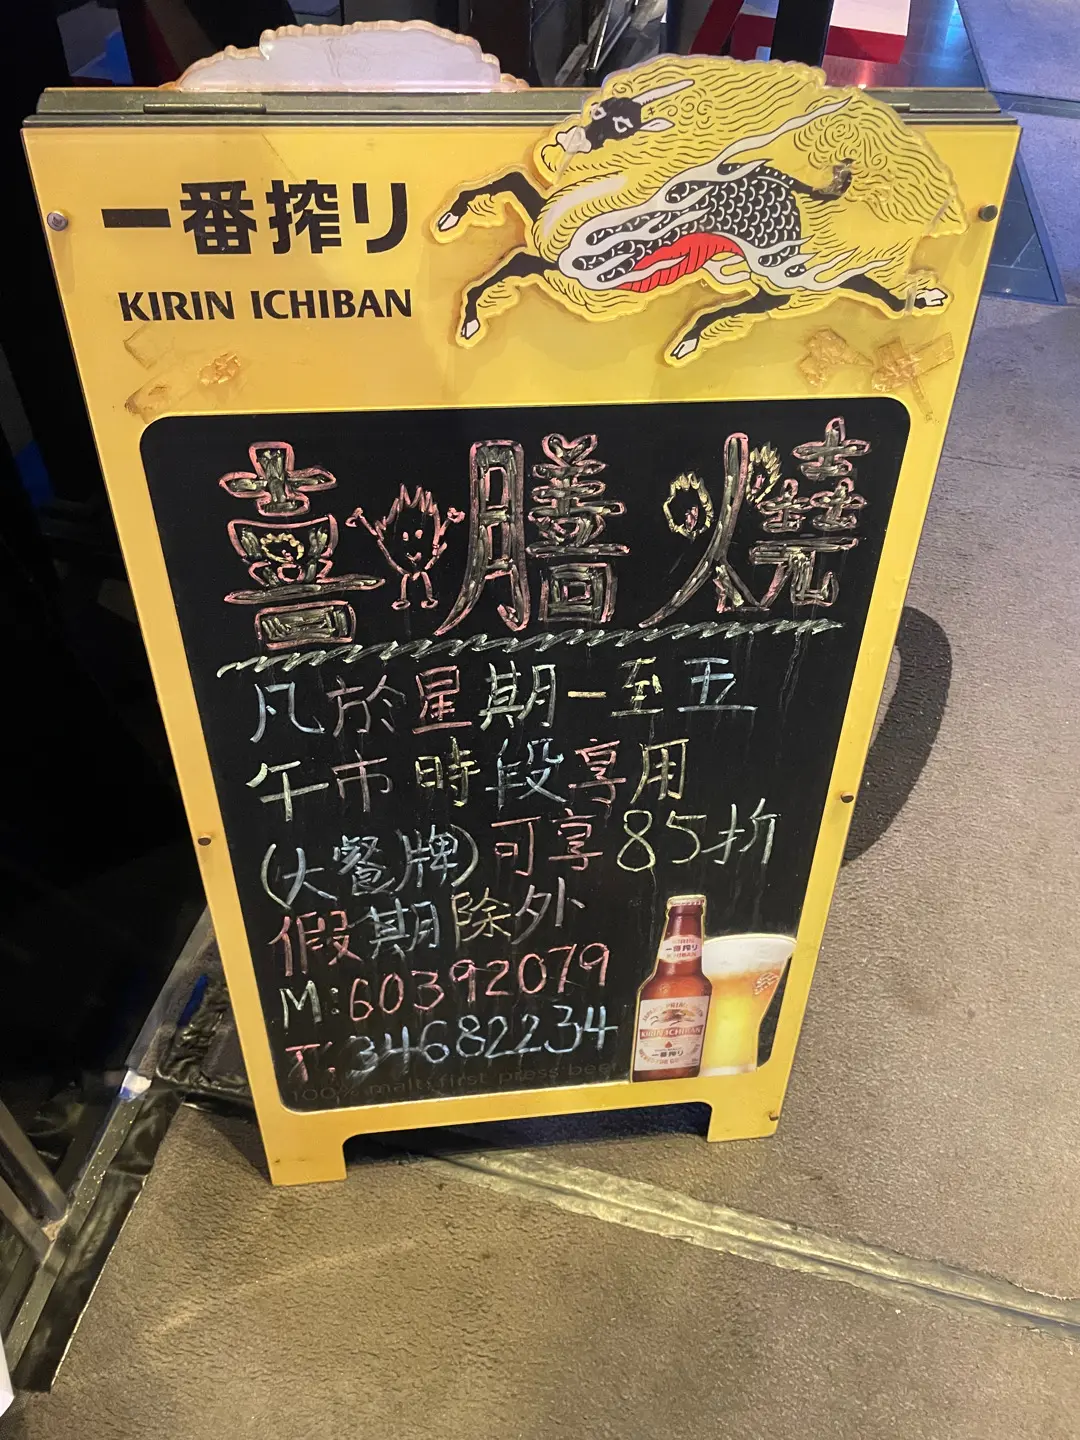 一番搾り
KIRIN ICHIBAN
喜膳燒
凡於星期一至五
午市時段享用
(大餐牌)可享85折
假期除外
M:60392079
T:34682234
100% malt first press beer
KIRIN ICHIBAN
一番搾り